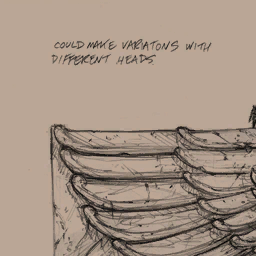 COULD MAKE VARIATONS WITH
DIFFERENT HEADS.